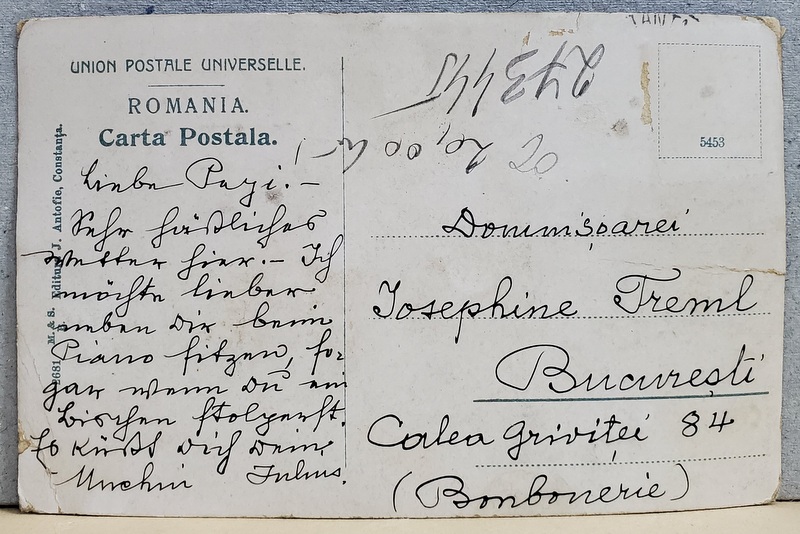 UNION POSTALE UNIVERSELLE.
ROMANIA.
Carta Postala.
2681 M. & S. Editura J. Antofie, Constanța.
Liebe Pepi. –
Sehr häßliches
Wetter hier. – Ich
möchte lieber
neben Dir beim
Piano sitzen, so-
gar wenn Du ein
bischen stolperst.
Es küßt Dich Dein
Julius.
273445
5453
Domnișoarei
Josephine Treml
București
Calea Griviței 84
(Bonbonerie)